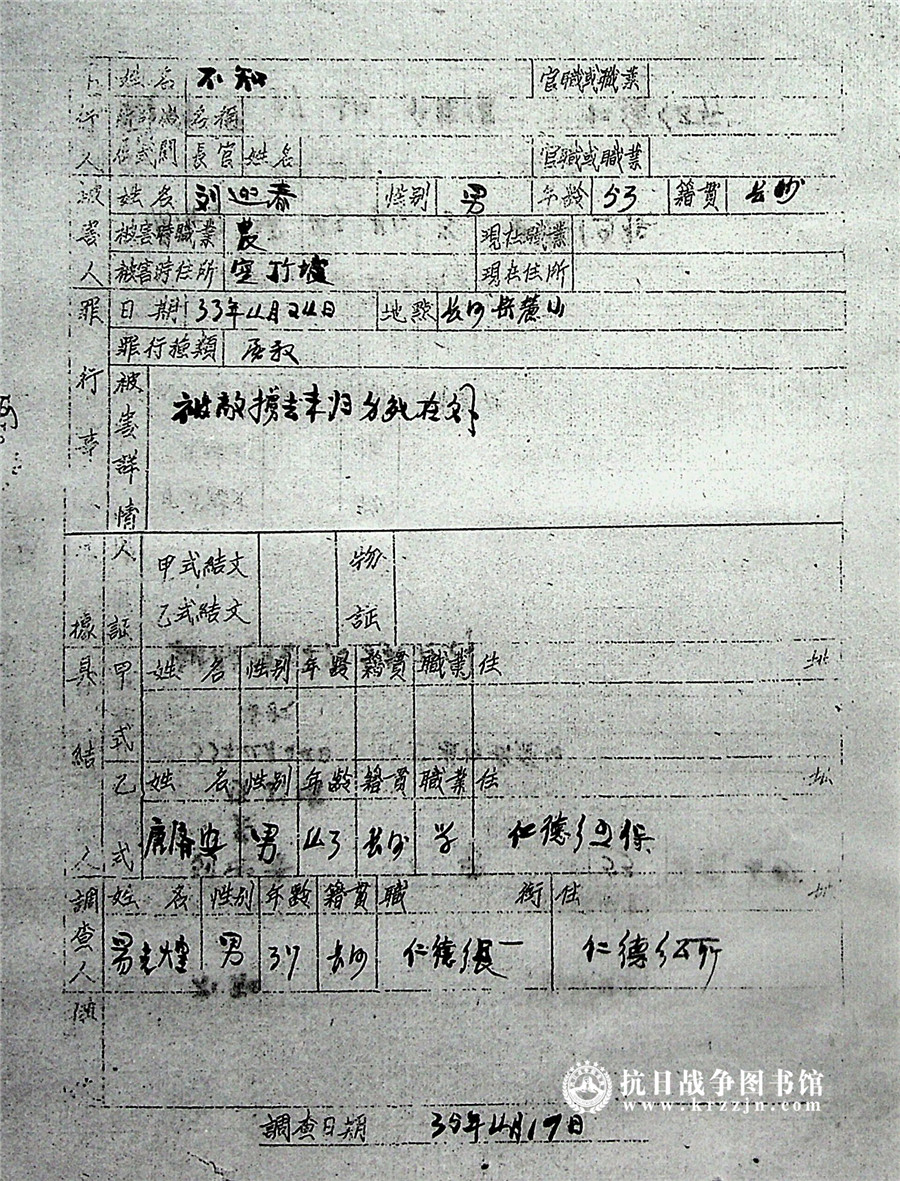 姓名 不知 官職或職業
行 名稱
人 長官 姓名 官職或職業
被 姓名 刘迎春 性别 男 年齡 53 籍貫 长沙
害 被害時職業 農 現在職業
人 被害時住所 空竹坡 現在住所
罪 日期 33年4月24日 地點 长沙岳麓山
行 罪行種類
被害詳情 被敵擄去未归
人証 甲式結文 物証
乙式結文
據
具結人 甲式 姓名 性别 年齡 籍貫 職業 住址
乙式 姓名 性别 年齡 籍貫 職業 住址
男 43 长沙 学 仁德
調查人 姓名 性别 年齡 籍貫 職銜 住
男 37 长沙 仁德 仁德
抗日战争图书馆
www.krzzjn.com
調查日期 35年4月17日